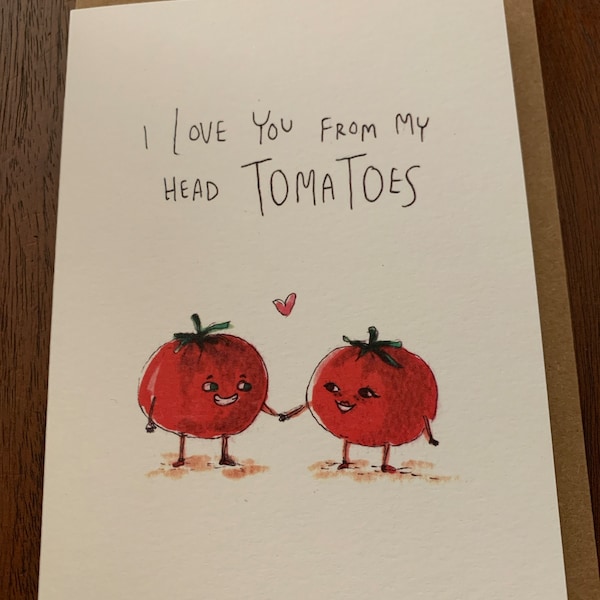 I LOVE YOU FROM MY
HEAD TOMATOES